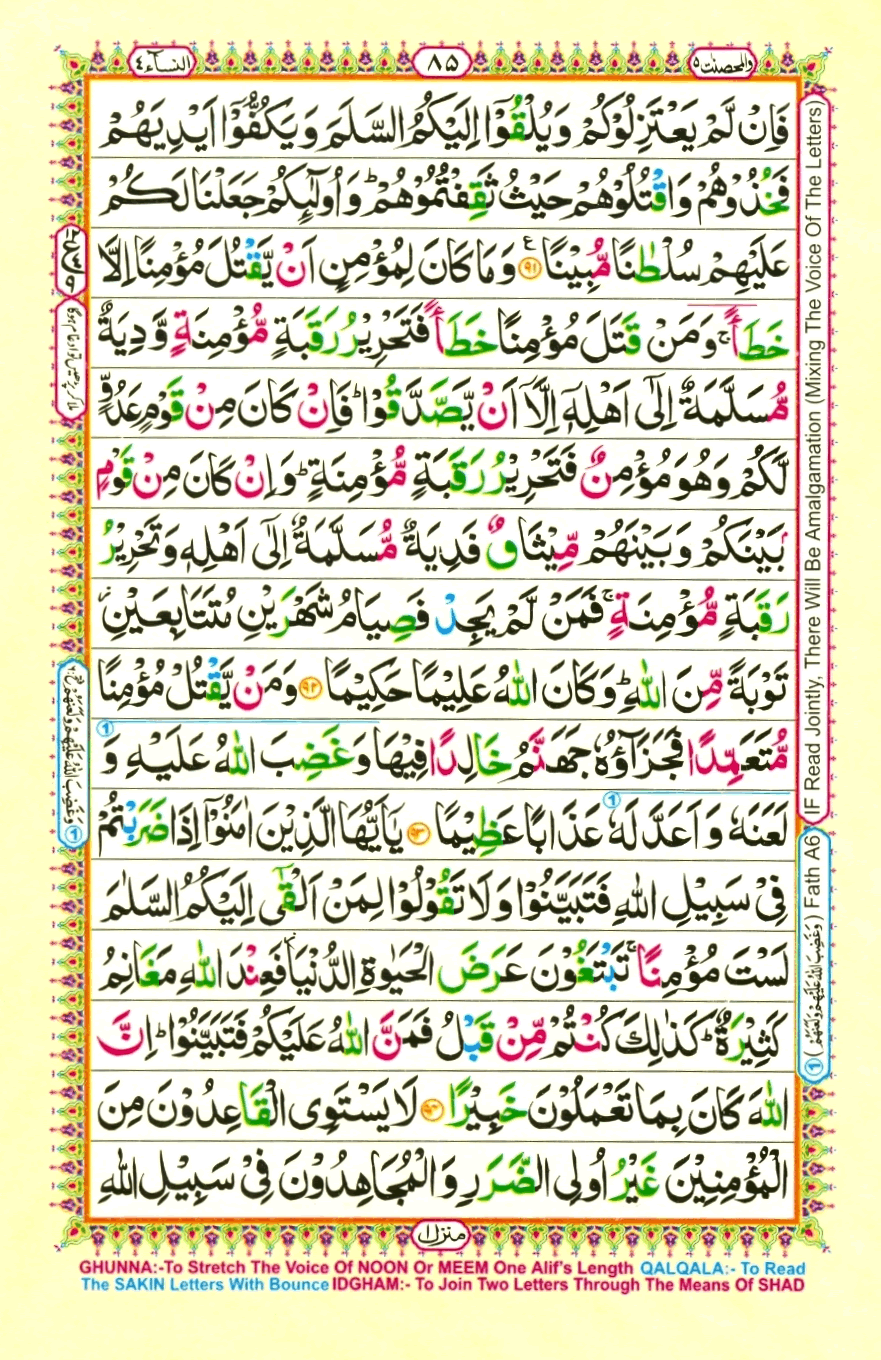 النسآء ٤
٨٥
والمحصنت ٥
فَاِنْ لَّمْ يَعْتَزِلُوْكُمْ وَيُلْقُوْٓا اِلَيْكُمُ السَّلَمَ وَيَكُفُّوْٓا اَيْدِيَهُمْ
فَخُذُوْهُمْ وَاقْتُلُوْهُمْ حَيْثُ ثَقِفْتُمُوْهُمْ ؕ وَاُولٰٓئِكُمْ جَعَلْنَا لَكُمْ
عَلَيْهِمْ سُلْطٰنًا مُّبِيْنًا ﴿٩١﴾ وَمَا كَانَ لِمُؤْمِنٍ اَنْ يَّقْتُلَ مُؤْمِنًا اِلَّا
خَطَـًٔا ۚ وَمَنْ قَتَلَ مُؤْمِنًا خَطَـًٔا فَتَحْرِيْرُ رَقَبَةٍ مُّؤْمِنَةٍ وَّدِيَةٌ
مُّسَلَّمَةٌ اِلٰٓى اَهْلِهٖٓ اِلَّاۤ اَنْ يَّصَّدَّقُوْا ؕ فَاِنْ كَانَ مِنْ قَوْمٍ عَدُوٍّ
لَّكُمْ وَهُوَ مُؤْمِنٌ فَتَحْرِيْرُ رَقَبَةٍ مُّؤْمِنَةٍ ؕ وَاِنْ كَانَ مِنْ قَوْمٍۭ
بَيْنَكُمْ وَبَيْنَهُمْ مِّيْثَاقٌ فَدِيَةٌ مُّسَلَّمَةٌ اِلٰٓى اَهْلِهٖ وَتَحْرِيْرُ
رَقَبَةٍ مُّؤْمِنَةٍ ۚ فَمَنْ لَّمْ يَجِدْ فَصِيَامُ شَهْرَيْنِ مُتَتَابِعَيْنِ ؗ
تَوْبَةً مِّنَ اللّٰهِ ؕ وَكَانَ اللّٰهُ عَلِيْمًا حَكِيْمًا ﴿٩٢﴾ وَمَنْ يَّقْتُلْ مُؤْمِنًا
مُّتَعَمِّدًا فَجَزَآؤُهٗ جَهَنَّمُ خَالِدًا فِيْهَا وَغَضِبَ اللّٰهُ عَلَيْهِ وَ
لَعَنَهٗ وَاَعَدَّ لَهٗ عَذَابًا عَظِيْمًا ﴿٩٣﴾ يٰٓاَيُّهَا الَّذِيْنَ اٰمَنُوْٓا اِذَا ضَرَبْتُمْ
فِيْ سَبِيْلِ اللّٰهِ فَتَبَيَّنُوْا وَلَا تَقُوْلُوْا لِمَنْ اَلْقٰٓى اِلَيْكُمُ السَّلٰمَ
لَسْتَ مُؤْمِنًا ۚ تَبْتَغُوْنَ عَرَضَ الْحَيٰوةِ الدُّنْيَا ؗ فَعِنْدَ اللّٰهِ مَغَانِمُ
كَثِيْرَةٌ ؕ كَذٰلِكَ كُنْتُمْ مِّنْ قَبْلُ فَمَنَّ اللّٰهُ عَلَيْكُمْ فَتَبَيَّنُوْا ؕ اِنَّ
اللّٰهَ كَانَ بِمَا تَعْمَلُوْنَ خَبِيْرًا ﴿٩٤﴾ لَا يَسْتَوِى الْقَاعِدُوْنَ مِنَ
الْمُؤْمِنِيْنَ غَيْرُ اُولِى الضَّرَرِ وَالْمُجَاهِدُوْنَ فِيْ سَبِيْلِ اللّٰهِ
منزل ١
IF Read Jointly, There Will Be Amalgamation (Mixing The Voice Of The Letters)
① (وَغَضِبَ اللّٰهُ عَلَيْهِمْ وَلَعَنَهُمْ) Fath A6
① وَغَضِبَ اللّٰهُ عَلَيْهِمْ وَلَعَنَهُمْ
GHUNNA:-To Stretch The Voice Of NOON Or MEEM One Alif's Length QALQALA:- To Read
The SAKIN Letters With Bounce IDGHAM:- To Join Two Letters Through The Means Of SHAD